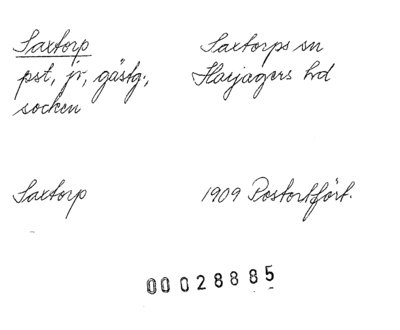 Saxtorp
Saxtorps sn
pst, jr, gästg.,
Harjagers hd
socken
Saxtorp
1909 Postortfört.
00028885